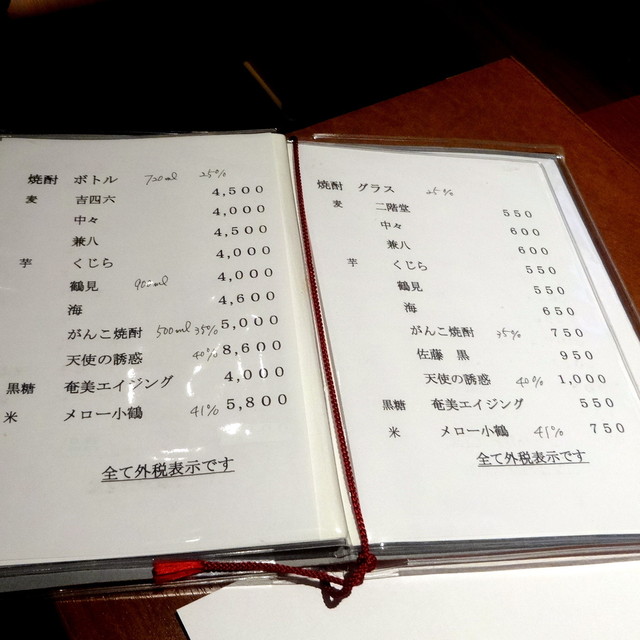 焼酎 ボトル 720ml 25%
麦 吉四六 4,500
中々 4,000
兼八 4,500
芋 くじら 4,000
鶴見 900ml 4,000
海 4,600
がんこ焼酎 500ml 35% 5,000
天使の誘惑 40% 8,600
黒糖 奄美エイジング 4,000
米 メロー小鶴 41% 5,800
全て外税表示です
焼酎 グラス 25%
麦 二階堂 550
中々 600
兼八 600
芋 くじら 550
鶴見 550
海 650
がんこ焼酎 35% 750
佐藤 黒 950
天使の誘惑 40% 1,000
黒糖 奄美エイジング 550
米 メロー小鶴 41% 750
全て外税表示です